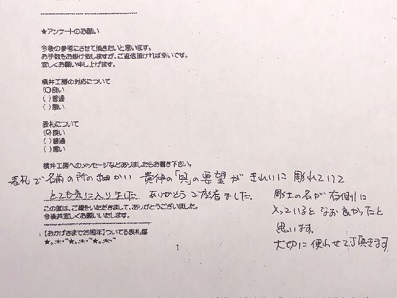 ★アンケートのお願い
今後の参考にさせて頂きたいと思います。
お手数をお掛け致しますが、ご返信頂ければ幸いです。
宜しくお願い申し上げます。
横井工房の対応について
(○)良い
( )普通
( )悪い
表札について
(○)良い
( )普通
( )悪い
横井工房へのメッセージなどありましたらお書き下さい。
表札で名前の所の細かい 書体の「 」の要望が きれいに彫れていて
とても気に入りました ありがとうございました。
彫士の名が右側に
入っているとなお良かったと
思います。
大切に使わせて頂きます。
この度は、ご縁をいただきまして、ありがとうございました。
今後共宜しくお願いいたします。
【おかげさまで25周年】ついてる表札屋
★。.:*・゜★。.:*・゜★。.:*・゜
1